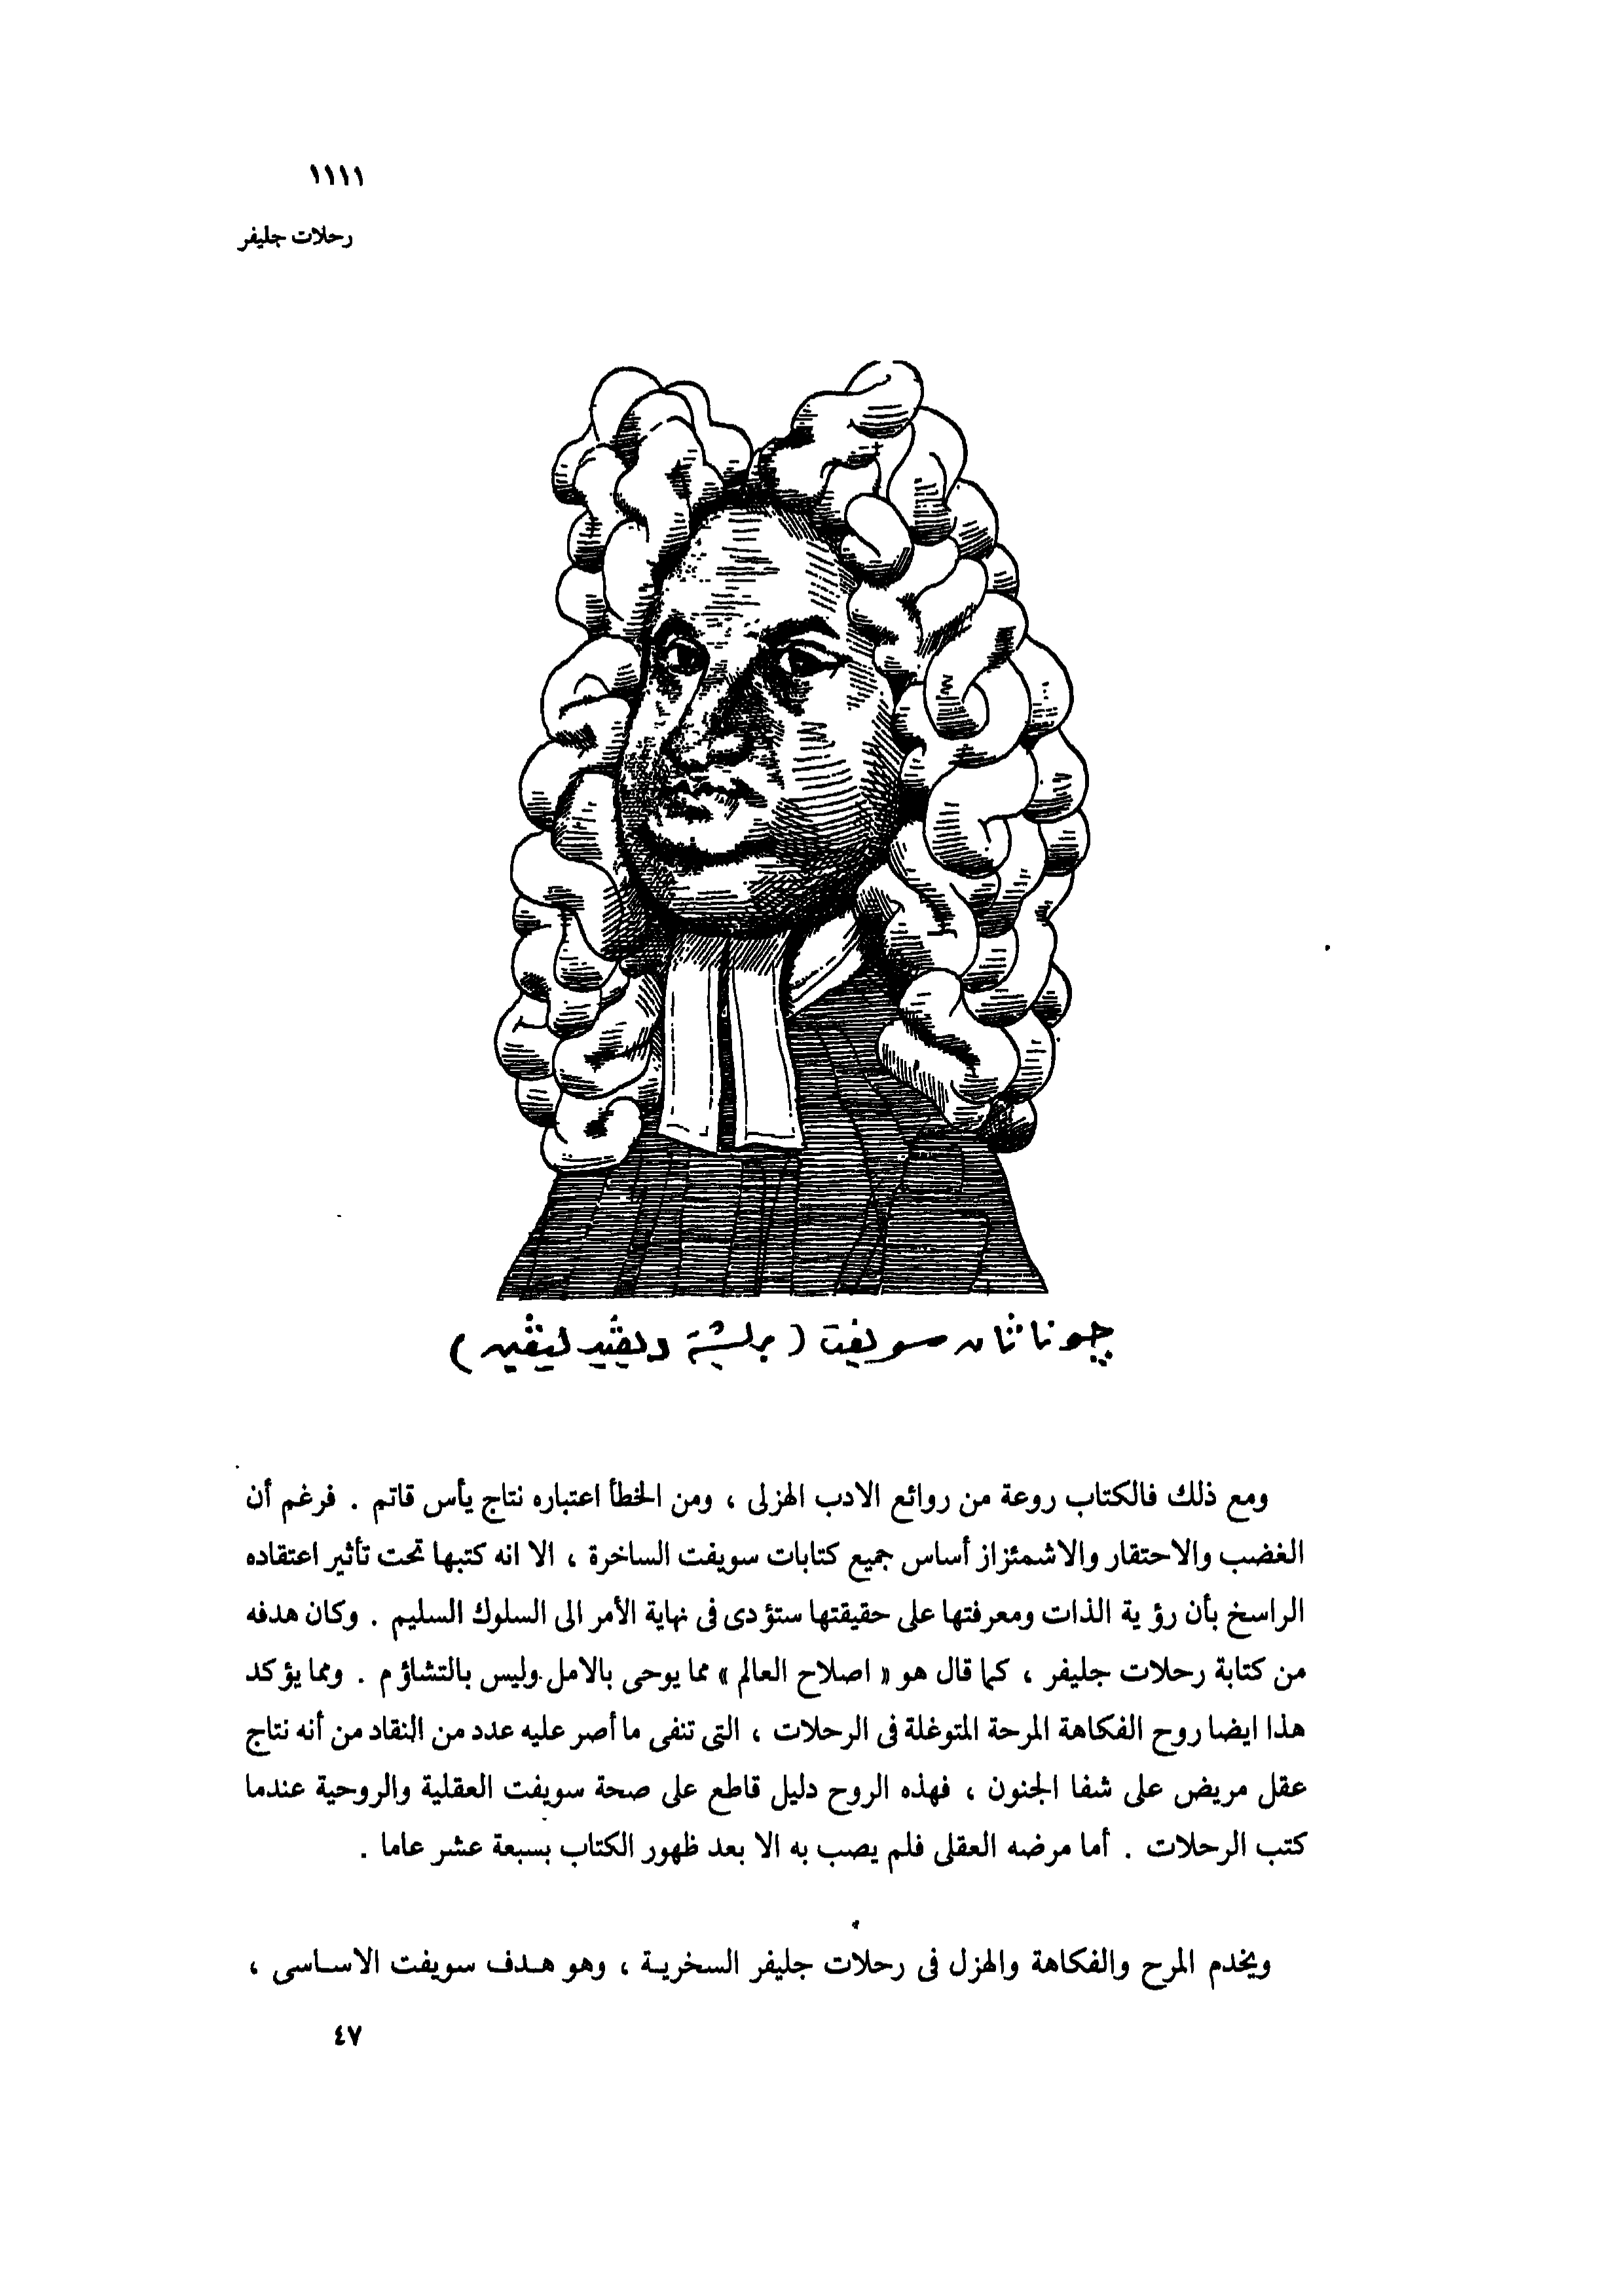 ١١١١
رحلات جليفر
چوناثان سويفت ( بريشة ديڤيد ليڤين )
ومع ذلك فالكتاب روعة من روائع الادب الهزلى ، ومن الخطأ اعتباره نتاج يأس قاتم . فرغم أن
الغضب والاحتقار والاشمئزاز أساس جميع كتابات سويفت الساخرة ، الا انه كتبها تحت تأثير اعتقاده
الراسخ بأن رؤية الذات ومعرفتها على حقيقتها ستؤدى فى نهاية الأمر الى السلوك السليم . وكان هدفه
من كتابة رحلات جليفر ، كما قال هو « اصلاح العالم » مما يوحى بالامل وليس بالتشاؤم . ومما يؤكد
هذا ايضا روح الفكاهة المرحة المتوغلة فى الرحلات ، التى تنفى ما أصر عليه عدد من النقاد من أنه نتاج
عقل مريض على شفا الجنون ، فهذه الروح دليل قاطع على صحة سويفت العقلية والروحية عندما
كتب الرحلات . أما مرضه العقلى فلم يصب به الا بعد ظهور الكتاب بسبعة عشر عاما .
ويخدم المرح والفكاهة والهزل فى رحلات جليفر السخرية ، وهو هدف سويفت الاساسى ،
٤٧